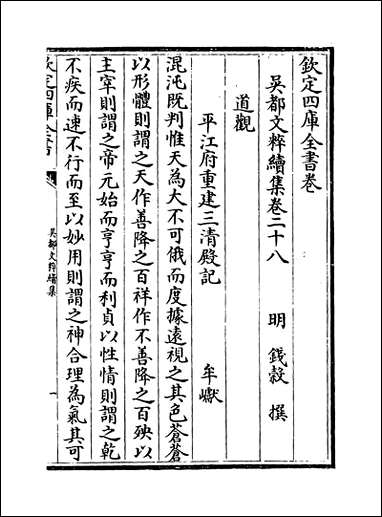 欽定四庫全書卷
吳都文粹續集卷二十八
明 錢穀 撰
道觀
平江府重建三清殿記 牟巘
混沌既判惟天為大不可俄而度據遠視之其色蒼蒼
以形體則謂之天作善降之百祥作不善降之百殃以
主宰則謂之帝元始而亨亨而利貞以性情則謂之乾
不疾而速不行而至以妙用則謂之神合理為氣其可
欽定四庫全書
吳都文粹續集
一